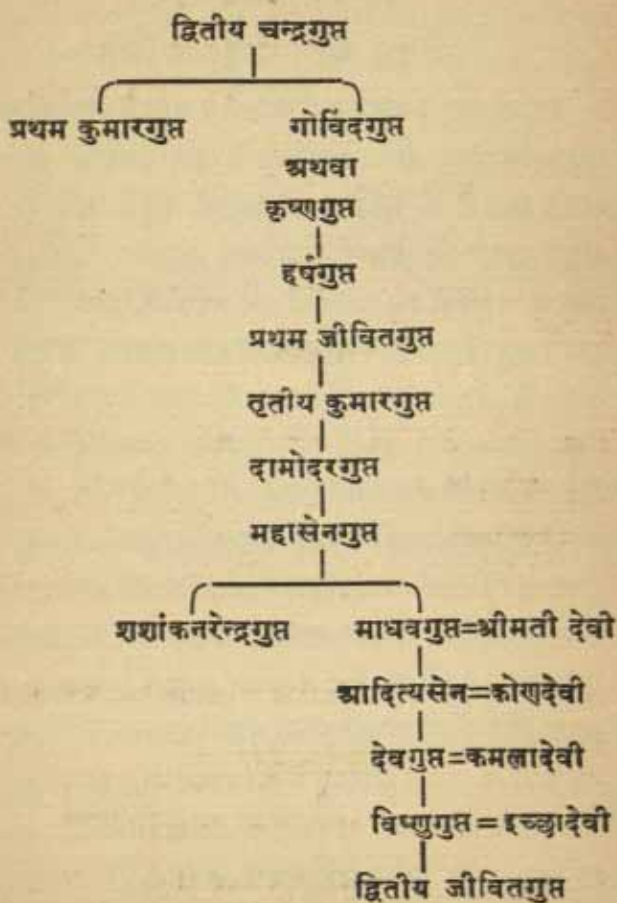 द्वितीय चन्द्रगुप्त
प्रथम कुमारगुप्त गोविंदगुप्त
अथवा
कृष्णगुप्त
हर्षगुप्त
प्रथम जीवितगुप्त
तृतीय कुमारगुप्त
दामोदरगुप्त
महासेनगुप्त
शशांकनरेन्द्रगुप्त माधवगुप्त=श्रीमती देवी
आदित्यसेन=कोणदेवी
देवगुप्त=कमलादेवी
विष्णुगुप्त=इच्छादेवी
द्वितीय जीवितगुप्त